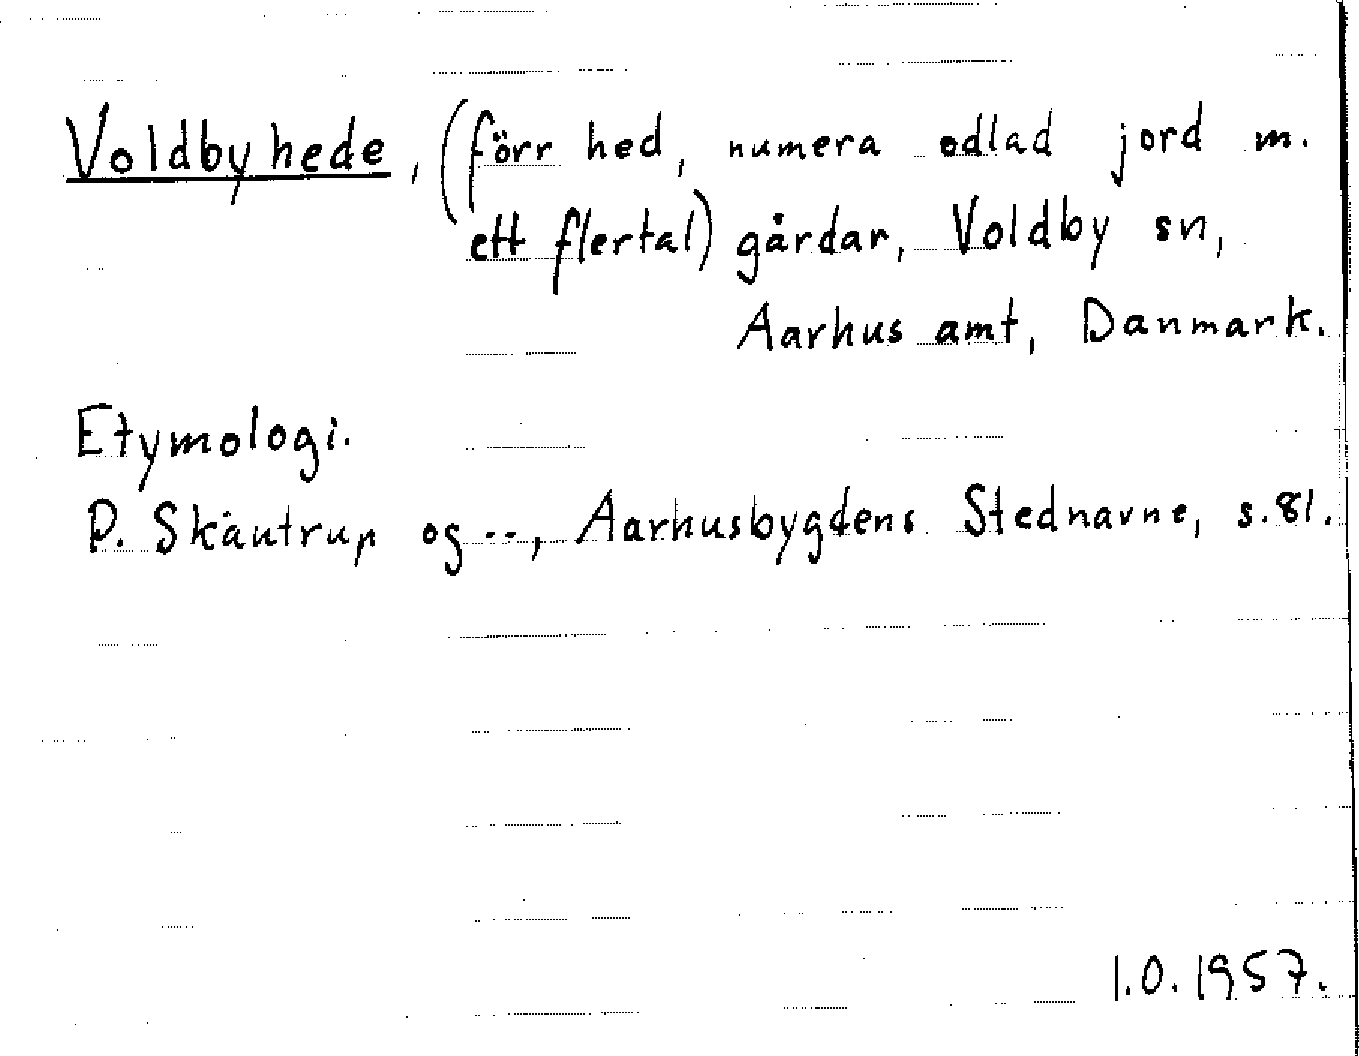 Voldby hede, (förr hed, numera odlad jord m.
ett flertal) gårdar, Voldby sn,
Aarhus amt, Danmark.
Etymologi.
P. Skautrup og --, Aarhusbygdens Stednavne, s. 81.
I.O. 1957.